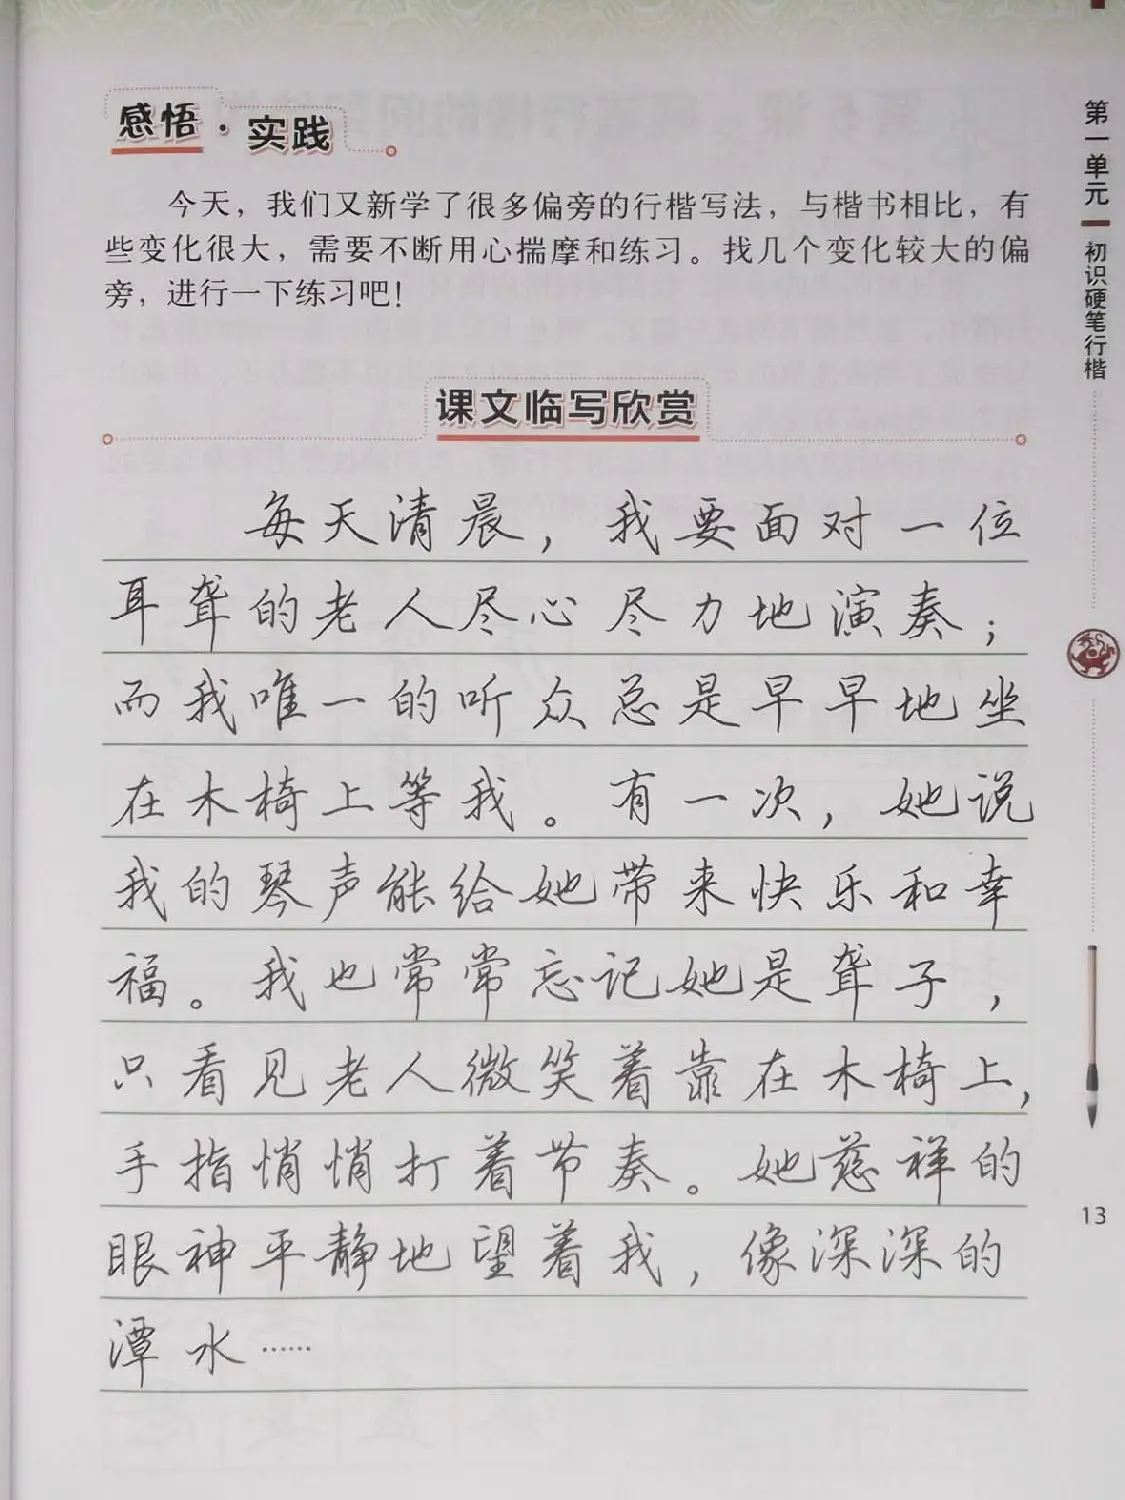 感悟·实践
今天，我们又新学了很多偏旁的行楷写法，与楷书相比，有
些变化很大，需要不断用心揣摩和练习。找几个变化较大的偏
旁，进行一下练习吧！
课文临写欣赏
每天清晨，我要面对一位
耳聋的老人尽心尽力地演奏；
而我唯一的听众总是早早地坐
在木椅上等我。有一次，她说
我的琴声能给她带来快乐和幸
福。我也常常忘记她是聋子，
只看见老人微笑着靠在木椅上，
手指悄悄打着节奏。她慈祥的
眼神平静地望着我，像深深的
潭水……
第一单元
初识硬笔行楷
13